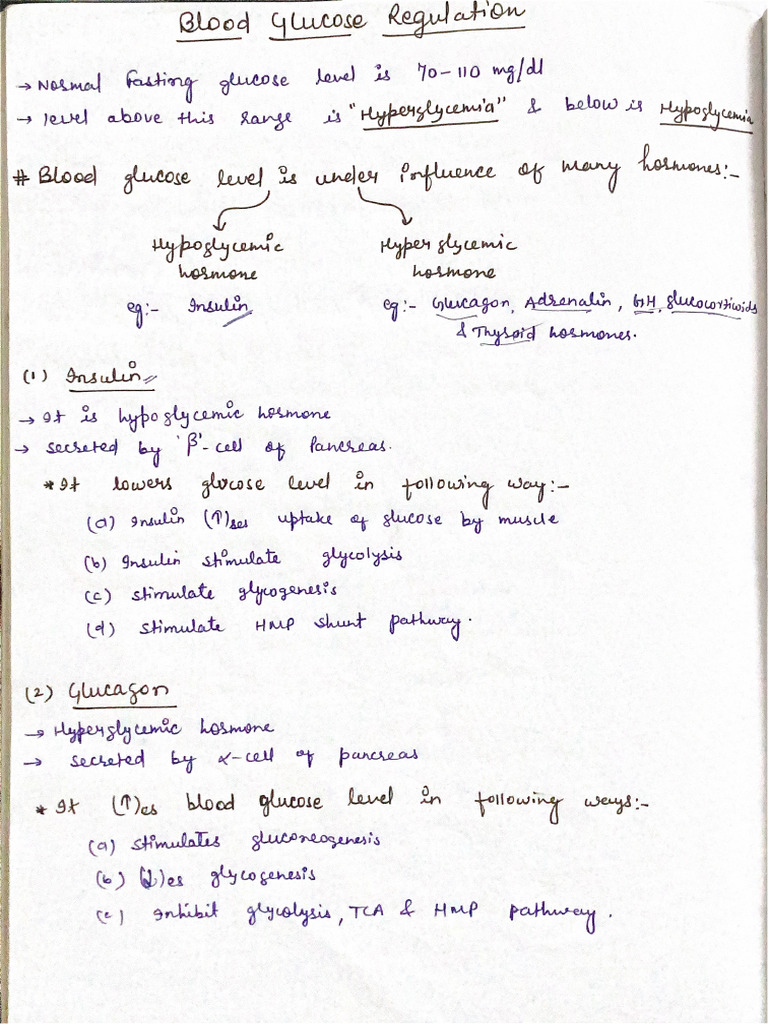 Blood Glucose Regulation
→ Normal fasting glucose level is 70-110 mg/dl
→ level above this range is "Hyperglycemia" & below is Hypoglycemia
# Blood glucose level is under influence of many hormones:-
Hypoglycemic hormone
eg:- Insulin
Hyperglycemic hormone
eg:- Glucagon, Adrenalin, GH, glucocorticoids
& Thyroid hormones.
(1) Insulin
→ It is hypoglycemic hormone
→ secreted by 'β'-cell of Pancreas.
* It lowers glucose level in following way:-
(a) Insulin (↑)ses uptake of glucose by muscle
(b) Insulin stimulate glycolysis
(c) stimulate glycogenesis
(d) stimulate HMP shunt pathway.
(2) Glucagon
→ Hyperglycemic hormone
→ secreted by α-cell of pancreas
* It (↑)es blood glucose level in following ways:-
(a) stimulates gluconeogenesis
(b) (↓)es glycogenesis
(c) Inhibit glycolysis, TCA & HMP pathway.